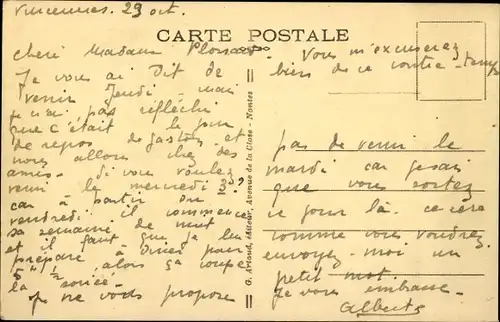 Vincennes. 29 oct.
CARTE POSTALE
Cheri Madame
Je vous ai Dit de
venir Jeudi - mai
je n'ai pas réfléchi
que c'était le jour
de repos de gaston et
nous allons chez des
amis. Si vous voulez
venir le mercredi
car à partir du
vendredi il commence
sa semaine de nuit
et il faut que je lui
prépare à Diner pour
5h 1/2 alors ça coupe
la soirée.
Je ne vous propose
G. Artaud, éditeur, Avenue de la Close - Nantes
Vous m'excuserez
bien de ce contre-temps
pas de venir le
mardi car je sais
que vous sortez
ce jour là.
comme vous voudrez
envoyez-moi un
petit mot.
Je vous embrasse.
Albert